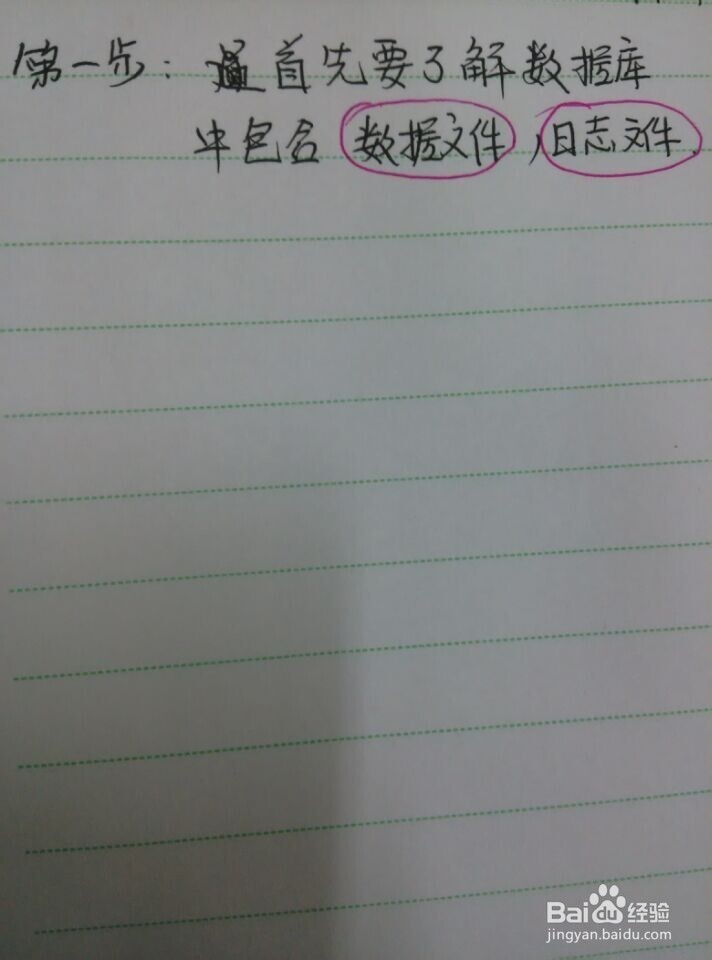 第一步：首先要了解数据库
中包含数据文件，日志文件.
Bai du 经验
jingyan.baidu.com